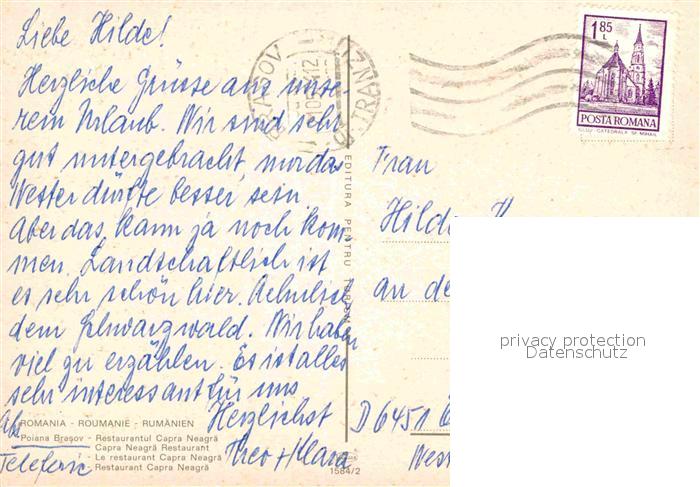 Liebe Hilde!
Herzliche Grüsse aus unse-
rem Urlaub. Wir sind sehr
gut untergebracht, nur das
Wetter dürfte besser sein,
Aber das kann ja noch kom-
men. Landschaftlich ist
es sehr schön hier. Aehnlich
dem Schwarzwald. Wir haben
viel zu erzählen. Es ist alles
sehr interessant für uns
Herzlichst
Theo + Klara
Abs
Telefonc
ROMANIA - ROUMANIE - RUMÄNIEN
Poiana Braşov - Restaurantul Capra Neagră
Capra Neagră Restaurant
- Le restaurant Capra Neagră
- Restaurant Capra Neagră
1584/2
EDITURA PENTRU TURISM
BRASOV
1,85 L
POSTA ROMANA
CLUJ - CATEDRALA SF. MIHAIL
Frau
Hilde
an de
D 6451
privacy protection
Datenschutz